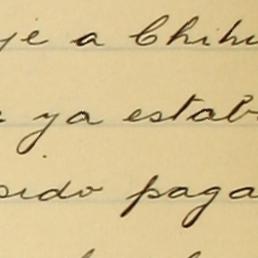 ye a Chihu
ya estab
sido paga